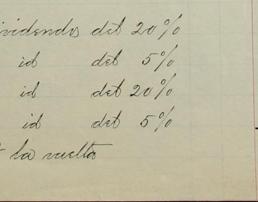 ividendos del 20%
id del 5%
id del 20%
id del 5%
la vuelta